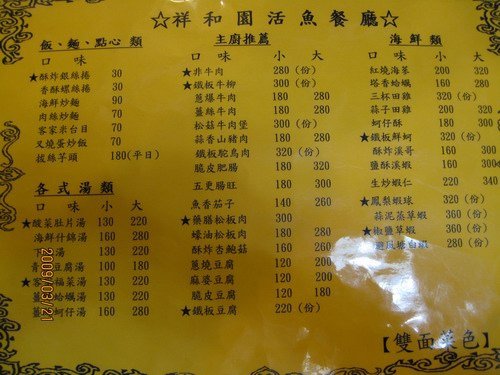 ☆祥和園活魚餐廳☆
飯、麵、點心 類
口 味
★酥炸銀絲捲 30
香酥螺絲捲 30
海鮮炒麵 90
肉絲炒麵 70
客家米台目 70
叉燒蛋炒飯 70
拔絲芋頭 180(平日)
各式湯類
口 味 小 大
★酸菜肚片湯 130 220
海鮮什錦湯 160 280
下 湯 130 220
青 豆腐湯 100 180
★客 福菜湯 130 220
薑 蛤蠣湯 130 220
蚵仔湯 160 280
主廚推薦
口 味 小 大
★非牛肉 280 (份)
★鐵板牛柳 300 (份)
蔥爆牛肉 180 280
薑絲牛肉 180 280
松菇牛肉堡 300 (份)
蒜香山豬肉 180 280
鐵板鴕鳥肉 320 (份)
脆皮肥腸 180 320
五更腸旺 180 300
魚香茄子 140 260
★藥膳松板肉 300
蠔油松板肉 180 300
酥炸杏鮑菇 160 280
蔥燒豆腐 120 200
麻婆豆腐 120 200
脆皮豆腐 120 180
★鐵板豆腐 220 (份)
海 鮮 類
口 味 小 大
紅燒海蔘 200 320
塔香蛤蠣 160 280
三杯田雞 320(份)
蒜子田雞 320(份)
蚵仔酥 180 300
★鐵板鮮蚵 320(份)
酥炸溪哥 160 280
鹽酥溪蝦 160 280
生炒蝦仁 220 340
★鳳梨蝦球 320 (份)
蒜泥蒸草蝦 360 (份)
★椒鹽草蝦 320 (份)
避風塘 蝦 280 (份)
【雙面菜色】
2009/03/21